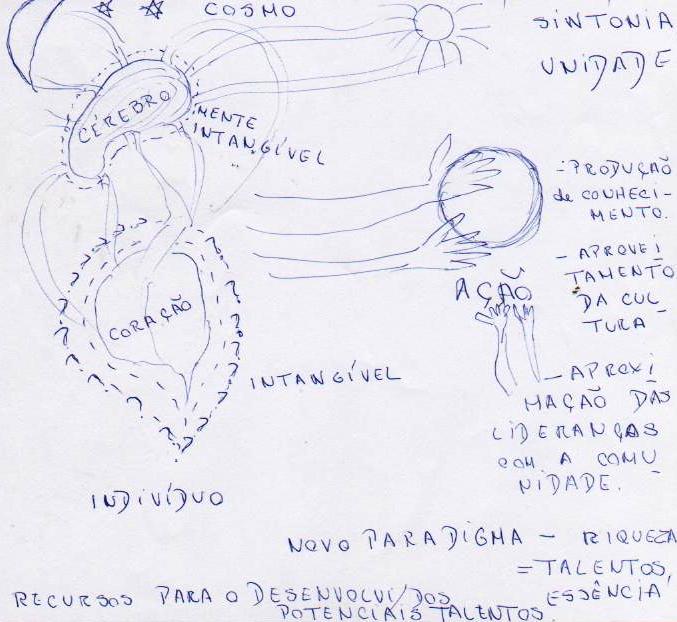 COSMO
SINTONIA
UNIDADE
CÉREBRO
MENTE
INTANGÍVEL
- PRODUÇÃO
de CONHECI-
MENTO.
- APROVEI
TAMENTO
DA CUL
TURA
AÇÃO
CORAÇÃO
INTANGÍVEL
- APROXI
MAÇÃO DAS
LIDERANÇAS
COM A COMU
NIDADE.
INDIVÍDUO
NOVO PARADIGMA - RIQUEZA
= TALENTOS,
ESSÊNCIA
RECURSOS PARA O DESENVOLVI/DOS
POTENCIAIS TALENTOS.